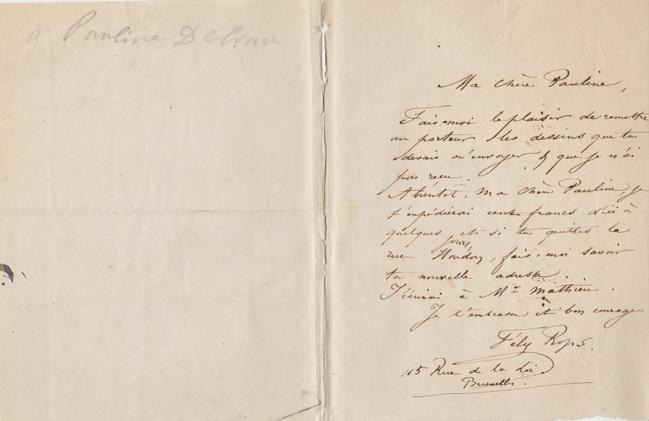 à Pauline Delvau
Ma chère Pauline,
Fais-moi le plaisir de remettre
au porteur les dessins que tu
devais m'envoyer & que je n'ai
pas reçu.
A bientôt, ma chère Pauline, je
t'expédierai cent francs d'ici à
quelques jours, et si tu quittes la
rue Houdon, fais-moi savoir
ta nouvelle adresse.
à Mr Mathieu.
Je t'embrasse et bon courage
Fély Rops.
115 Rue de la Loi
Bruxelles.